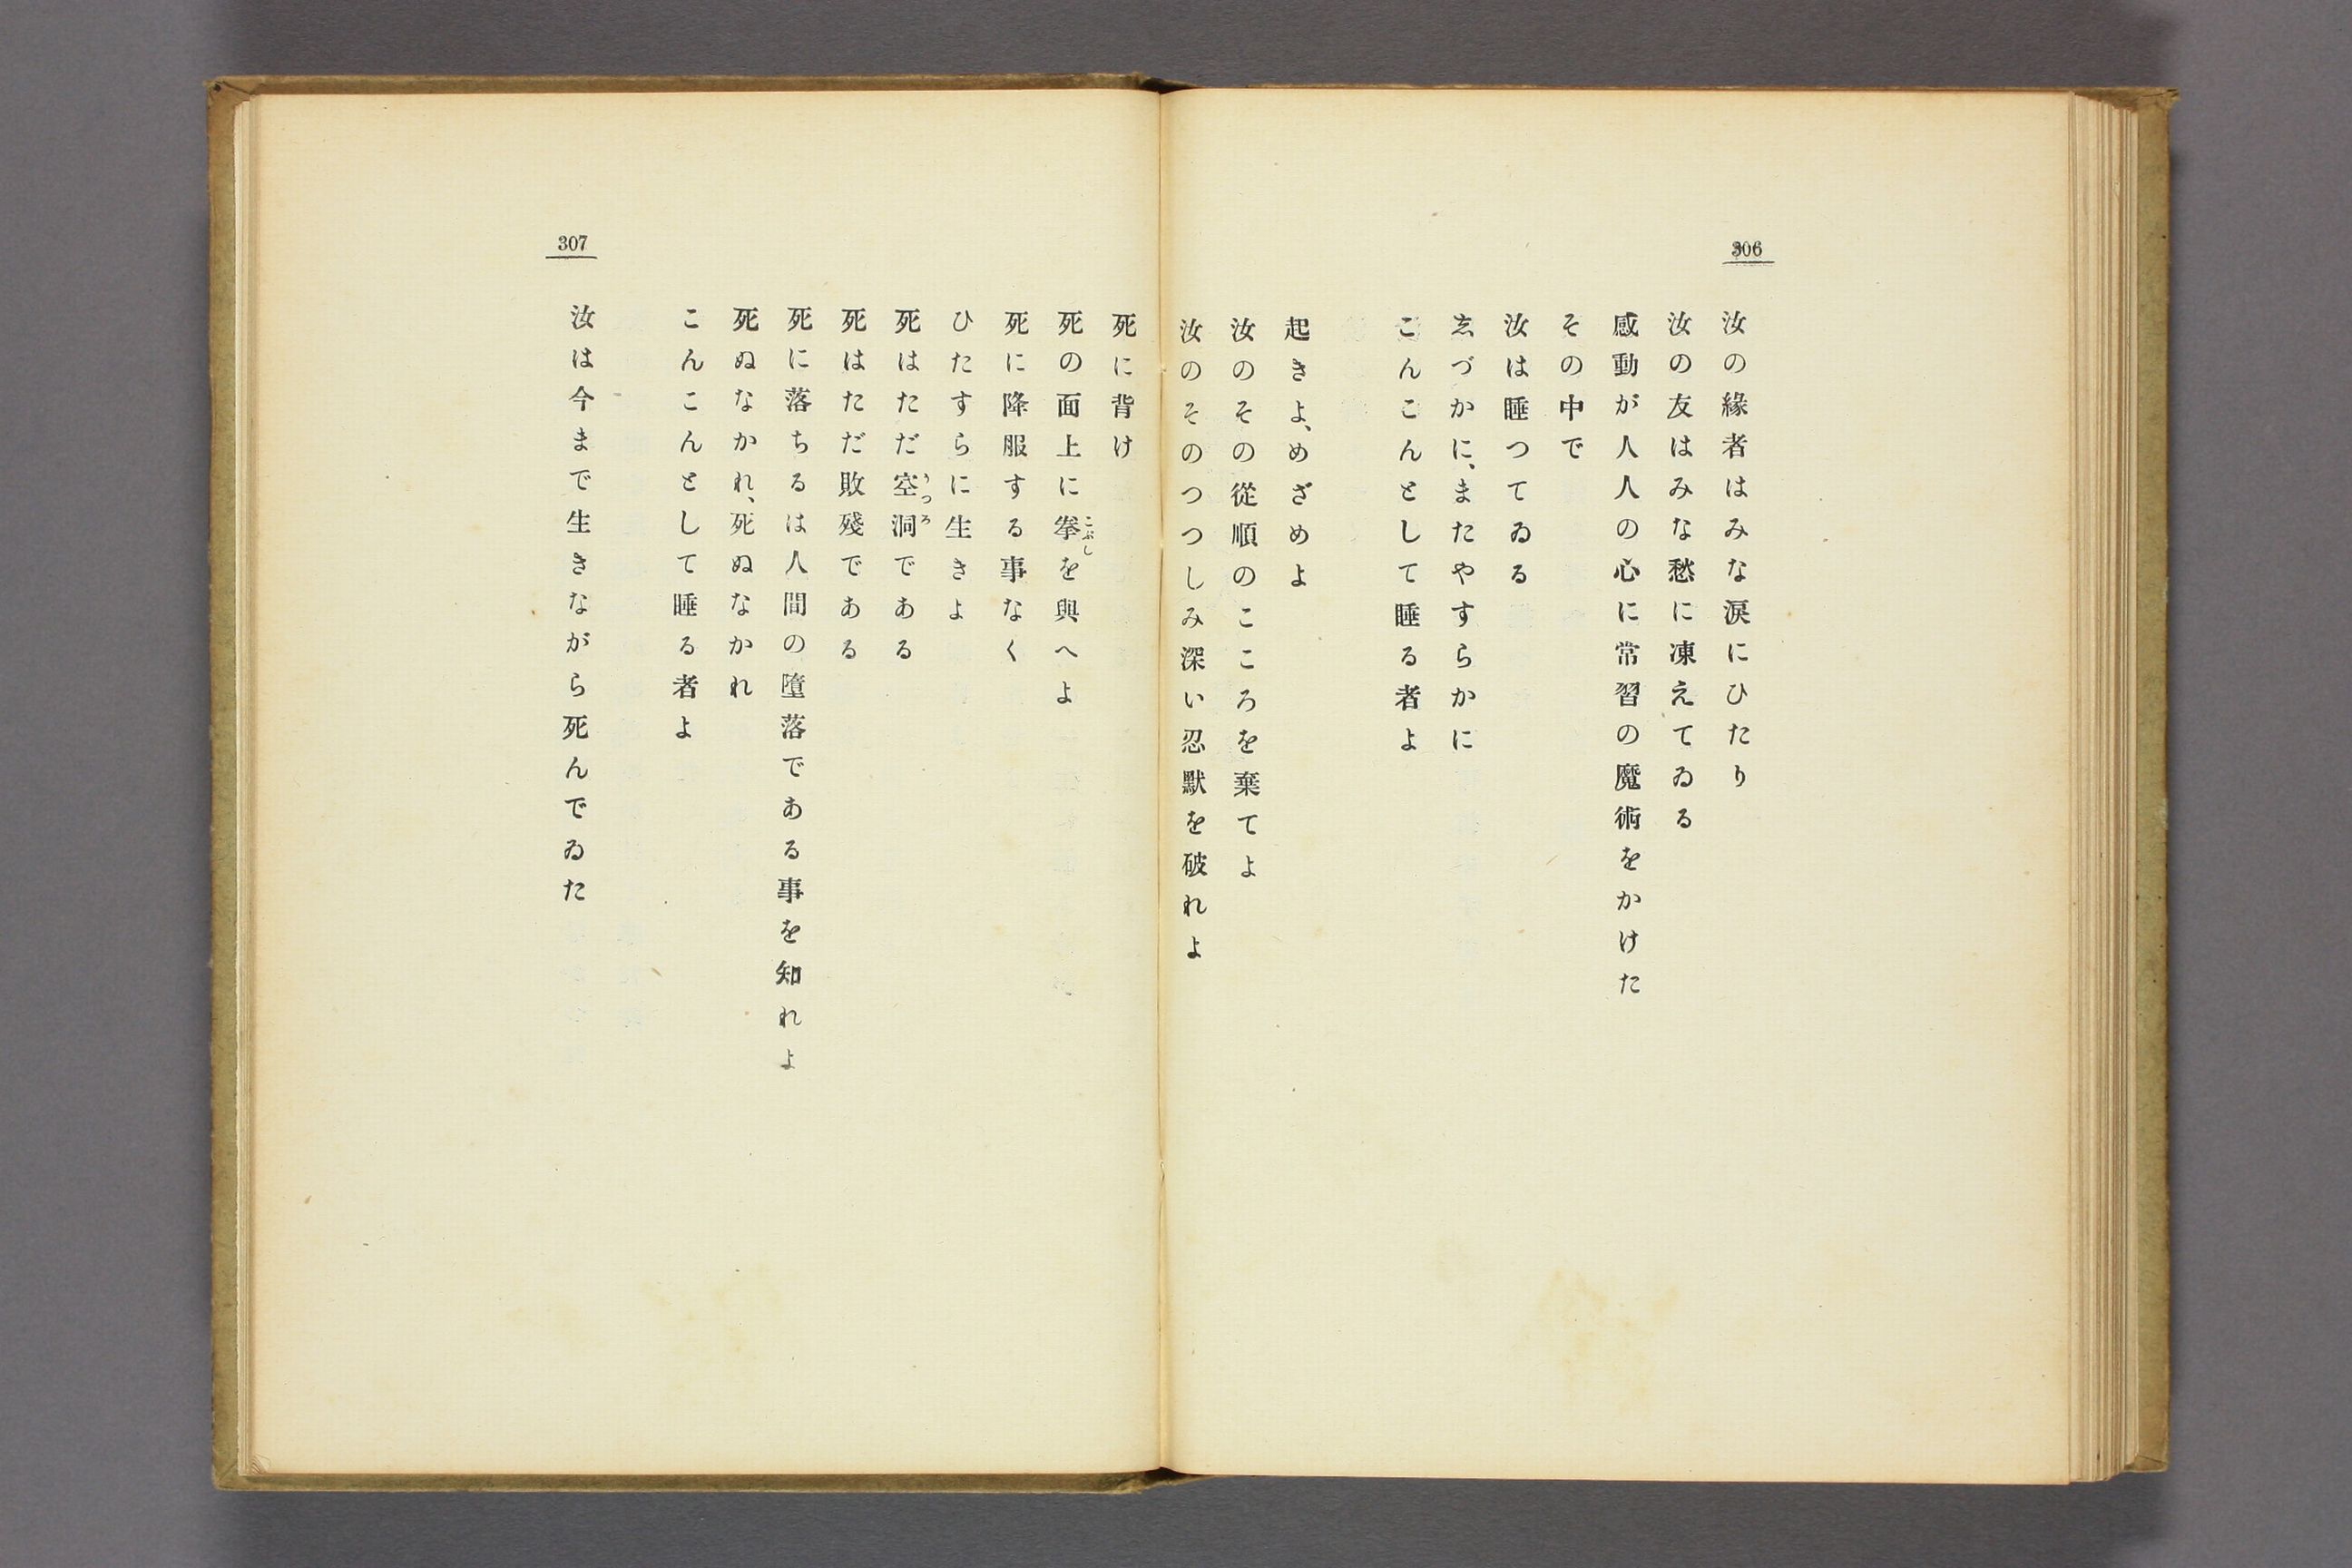 306
汝の緣者はみな淚にひたり
汝の友はみな愁に凍えてゐる
感動が人人の心に常習の魔術をかけた
その中で
汝は睡つてゐる
志づかに、またやすらかに
こんこんとして睡る者よ
起きよ、めざめよ
汝のその從順のこころを棄てよ
汝のそのつつしみ深い忍默を破れよ
307
死に背け
死の面上に拳こぶしを與へよ
死に降服する事なく
ひたすらに生きよ
死はただ空洞うつろである
死はただ敗殘である
死に落ちるは人間の墮落である事を知れよ
死ぬなかれ、死ぬなかれ
こんこんとして睡る者よ
汝は今まで生きながら死んでゐた